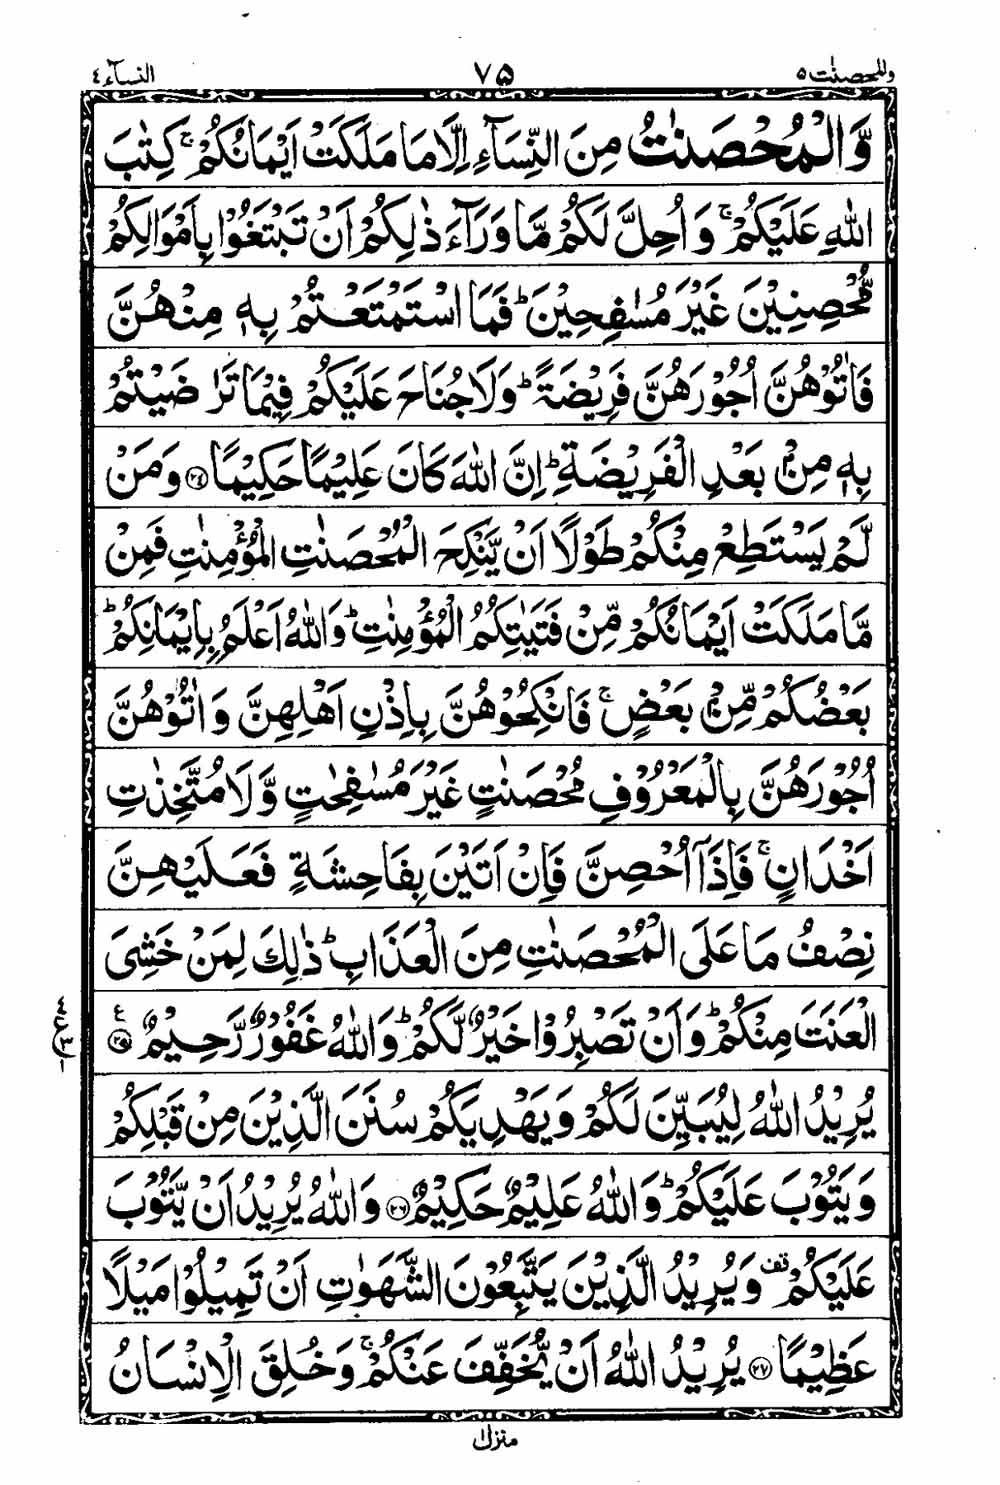 والمحصنٰت ٥
٧٥
النسآء ٤
وَّالْمُحْصَنٰتُ مِنَ النِّسَآءِ اِلَّا مَا مَلَكَتْ اَيْمَانُكُمْ ۚ كِتٰبَ
اللّٰهِ عَلَيْكُمْ ۚ وَ اُحِلَّ لَكُمْ مَّا وَرَآءَ ذٰلِكُمْ اَنْ تَبْتَغُوْا بِاَمْوَالِكُمْ
مُّحْصِنِيْنَ غَيْرَ مُسٰفِحِيْنَ ؕ فَمَا اسْتَمْتَعْتُمْ بِهٖ مِنْهُنَّ
فَاٰتُوْهُنَّ اُجُوْرَهُنَّ فَرِيْضَةً ؕ وَلَا جُنَاحَ عَلَيْكُمْ فِيْمَا تَرٰضَيْتُمْ
بِهٖ مِنْۢ بَعْدِ الْفَرِيْضَةِ ؕ اِنَّ اللّٰهَ كَانَ عَلِيْمًا حَكِيْمًا ۝٢٤ وَمَنْ
لَّمْ يَسْتَطِعْ مِنْكُمْ طَوْلًا اَنْ يَّنْكِحَ الْمُحْصَنٰتِ الْمُؤْمِنٰتِ فَمِنْ
مَّا مَلَكَتْ اَيْمَانُكُمْ مِّنْ فَتَيٰتِكُمُ الْمُؤْمِنٰتِ ؕ وَاللّٰهُ اَعْلَمُ بِاِيْمَانِكُمْ ؕ
بَعْضُكُمْ مِّنْۢ بَعْضٍ ۚ فَانْكِحُوْهُنَّ بِاِذْنِ اَهْلِهِنَّ وَ اٰتُوْهُنَّ
اُجُوْرَهُنَّ بِالْمَعْرُوْفِ مُحْصَنٰتٍ غَيْرَ مُسٰفِحٰتٍ وَّلَا مُتَّخِذٰتِ
اَخْدَانٍ ۚ فَاِذَاۤ اُحْصِنَّ فَاِنْ اَتَيْنَ بِفَاحِشَةٍ فَعَلَيْهِنَّ
نِصْفُ مَا عَلَى الْمُحْصَنٰتِ مِنَ الْعَذَابِ ؕ ذٰلِكَ لِمَنْ خَشِيَ
الْعَنَتَ مِنْكُمْ ؕ وَاَنْ تَصْبِرُوْا خَيْرٌ لَّكُمْ ؕ وَاللّٰهُ غَفُوْرٌ رَّحِيْمٌ ۝٢٥ ع
يُرِيْدُ اللّٰهُ لِيُبَيِّنَ لَكُمْ وَيَهْدِيَكُمْ سُنَنَ الَّذِيْنَ مِنْ قَبْلِكُمْ
وَيَتُوْبَ عَلَيْكُمْ ؕ وَاللّٰهُ عَلِيْمٌ حَكِيْمٌ ۝٢٦ وَاللّٰهُ يُرِيْدُ اَنْ يَّتُوْبَ
عَلَيْكُمْ قف وَيُرِيْدُ الَّذِيْنَ يَتَّبِعُوْنَ الشَّهَوٰتِ اَنْ تَمِيْلُوْا مَيْلًا
عَظِيْمًا ۝٢٧ يُرِيْدُ اللّٰهُ اَنْ يُّخَفِّفَ عَنْكُمْ ۚ وَخُلِقَ الْاِنْسَانُ
منزل ١